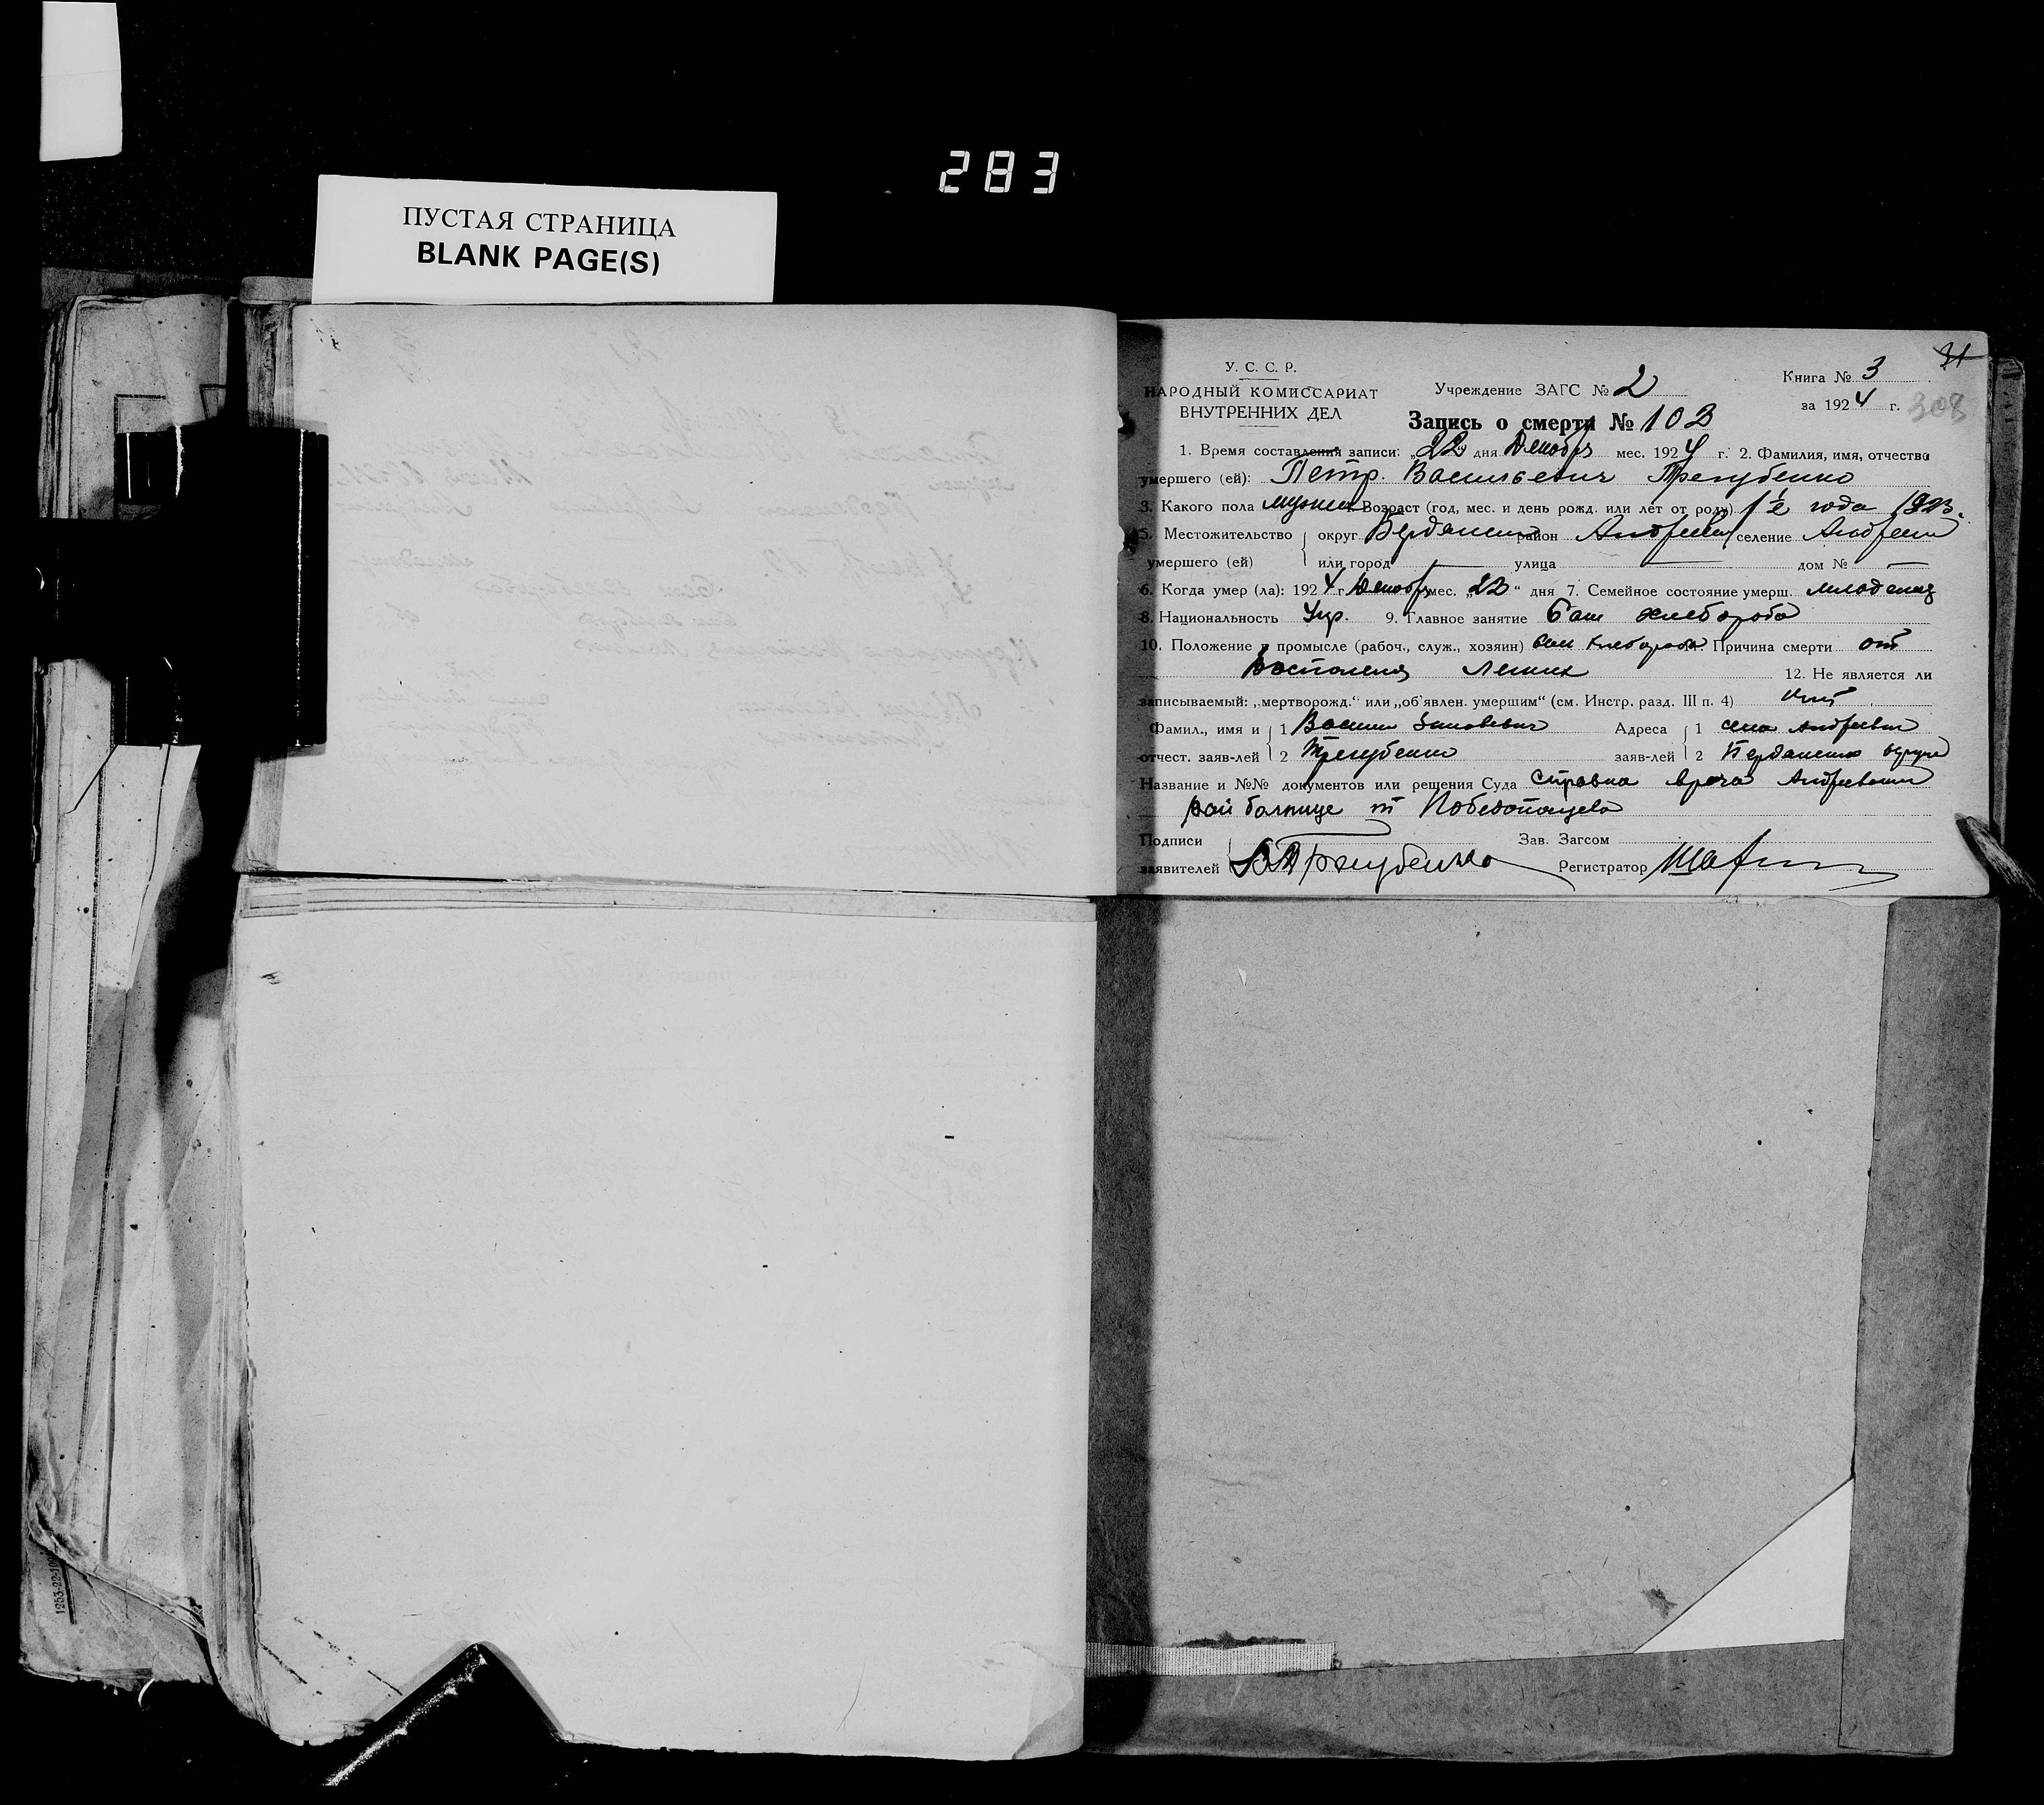 283
ПУСТАЯ СТРАНИЦА
BLANK PAGE(S)
31
У. С. С. Р.
НАРОДНЫЙ КОМИССАРИАТ
ВНУТРЕННИХ ДЕЛ
Учреждение ЗАГС № 2
Книга № 3
за 1924 г. 308
Запись о смерти № 103
1. Время составления записи: „22" дня Декабря мес. 1924 г. 2. Фамилия, имя, отчество
умершего (ей): Петр. Васильевич Трегубенко
3. Какого пола мужск 4. Возраст (год, мес. и день рожд. или лет от роду) 1½ года 1923.
5. Местожительство округ Бердянский район Андреевск селение Андреевка
умершего (ей) или город — улица — дом № —
6. Когда умер (ла): 1924 г. Декабря мес. „22" дня 7. Семейное состояние умерш. младенец
8. Национальность Укр. 9. Главное занятие хлебороба
10. Положение в промысле (рабоч., служ., хозяин) хлебороба Причина смерти от
Воспаления Легких 12. Не является ли
записываемый: „мертворожд." или „об'явлен. умершим" (см. Инстр. разд. III п. 4) нет
Фамил., имя и 1 Василий Зиновьевич Адреса 1 село Андреевка
отчест. заяв-лей 2 Трегубенко заяв-лей 2 Бердянского округа
Название и №№ документов или решения Суда справка врача Андреевской
рай больнице т Победоносцева
Подписи Зав. Загсом
заявителей В Трегубенко Регистратор
1263-22-100